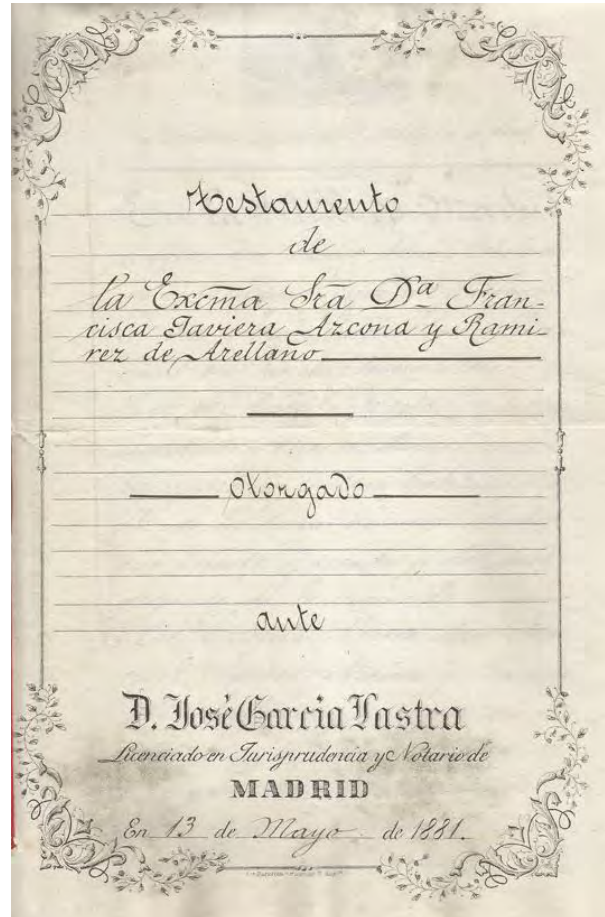 Testamento
de
la Excma Sra Dª Fran-
cisca Javiera Azcona y Rami-
rez de Arellano
Otorgado
ante
D. José Garcia Lastra
Licenciado en Jurisprudencia y Notario de
MADRID
En 13 de Mayo de 1881.